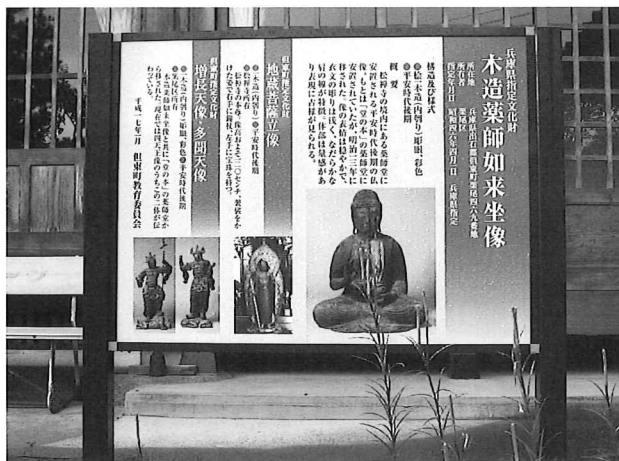 兵庫県指定文化財
木造薬師如来坐像
所在地 兵庫県出石郡但東町栗尾四六九番地
所有者 栗尾区
指定年月日 昭和四六年四月一日 兵庫県指定
構造及び様式
桧一木造（内刳り）彫眼、彩色
平安時代後期
概要
松禅寺の境内にある薬師堂に
安置される平安時代後期の仏
像。もとは「堂の本」の薬師堂に
安置されていたが、明治二三年に
移された。像の表情は穏やかで、
衣文の彫りは浅く、なだらかな
肩の線が特徴。下部は量感があ
り表現に古様が見られる。
但東町指定文化財
地蔵菩薩立像
一木造（内刳り）平安時代後期
松禅寺所有
松禅寺本尊。像高およそ一二〇センチ、袈裟をか
けた姿で右手に錫杖、左手に宝珠を持つ。
但東町指定文化財
増長天像・多聞天像
一木造（内刳り）彫眼、彩色 平安時代後期
栗尾区所有
木造薬師如来坐像と共に「堂の本」の薬師堂か
ら移された。現在では四天王像のうちこの二体が伝
わっている。
平成一七年二月 但東町教育委員会